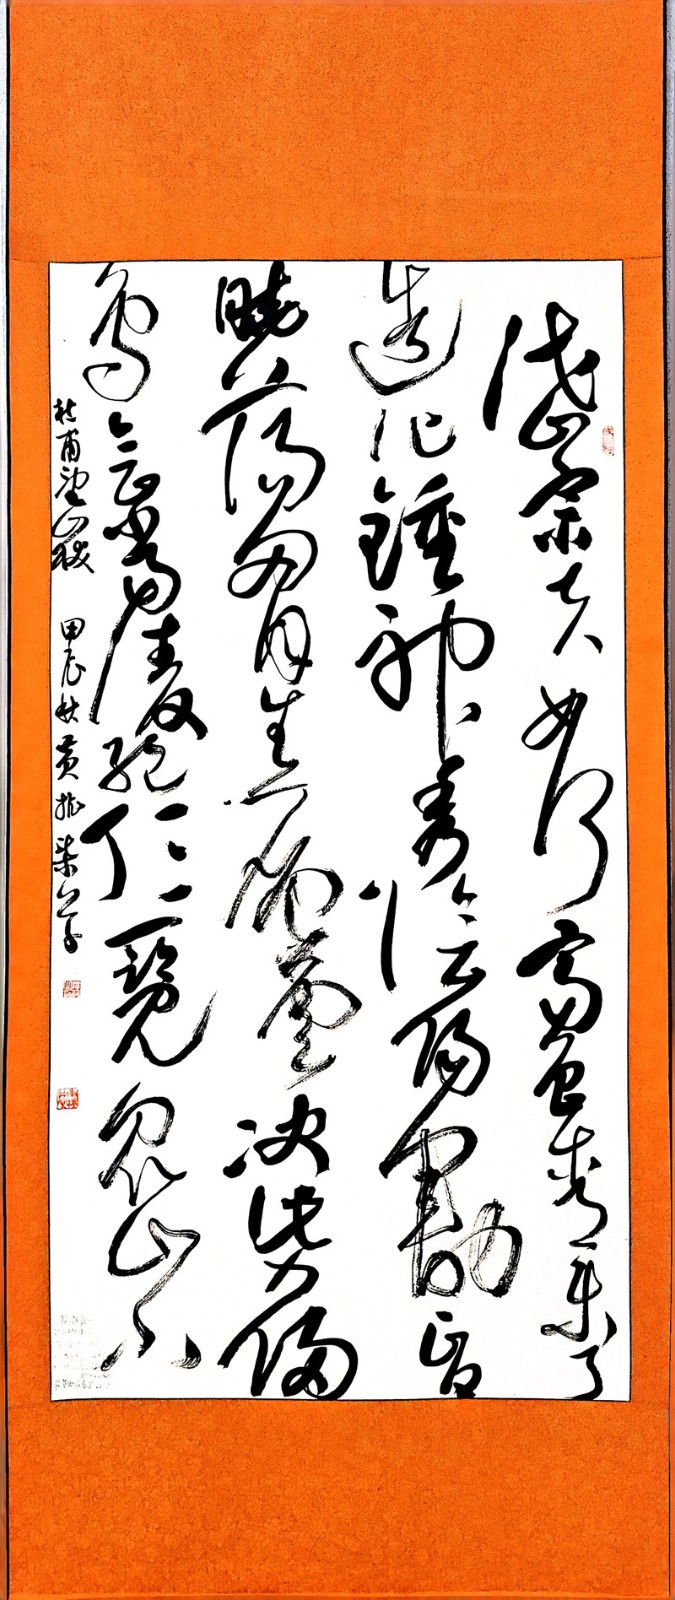 岱宗夫如何齊魯青未了
造化鍾神秀陰陽割昏
曉蕩胸生層雲決眥入歸
鳥會當凌絕頂一覽眾山小
杜甫望嶽 甲辰秋 黄